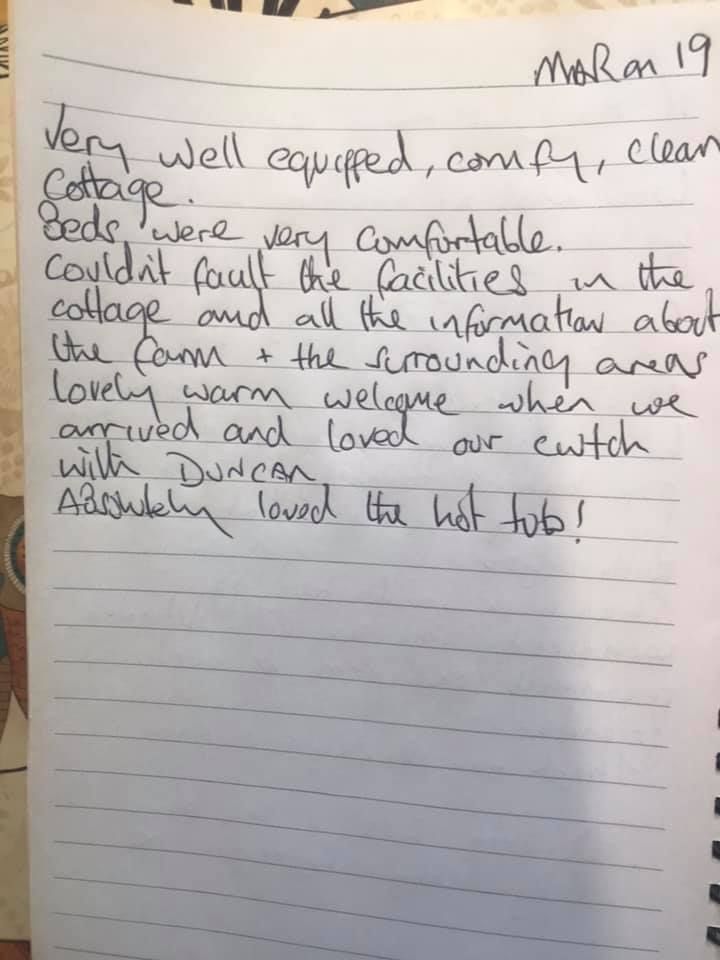 MARCH 19
Very well equipped, comfy, clean
Cottage.
Beds were very comfortable.
Couldn't fault the facilities in the
cottage and all the information about
the farm + the surrounding areas
lovely warm welcome when we
arrived and loved our cwtch
with DUNCAN
Absolutely loved the hot tub!